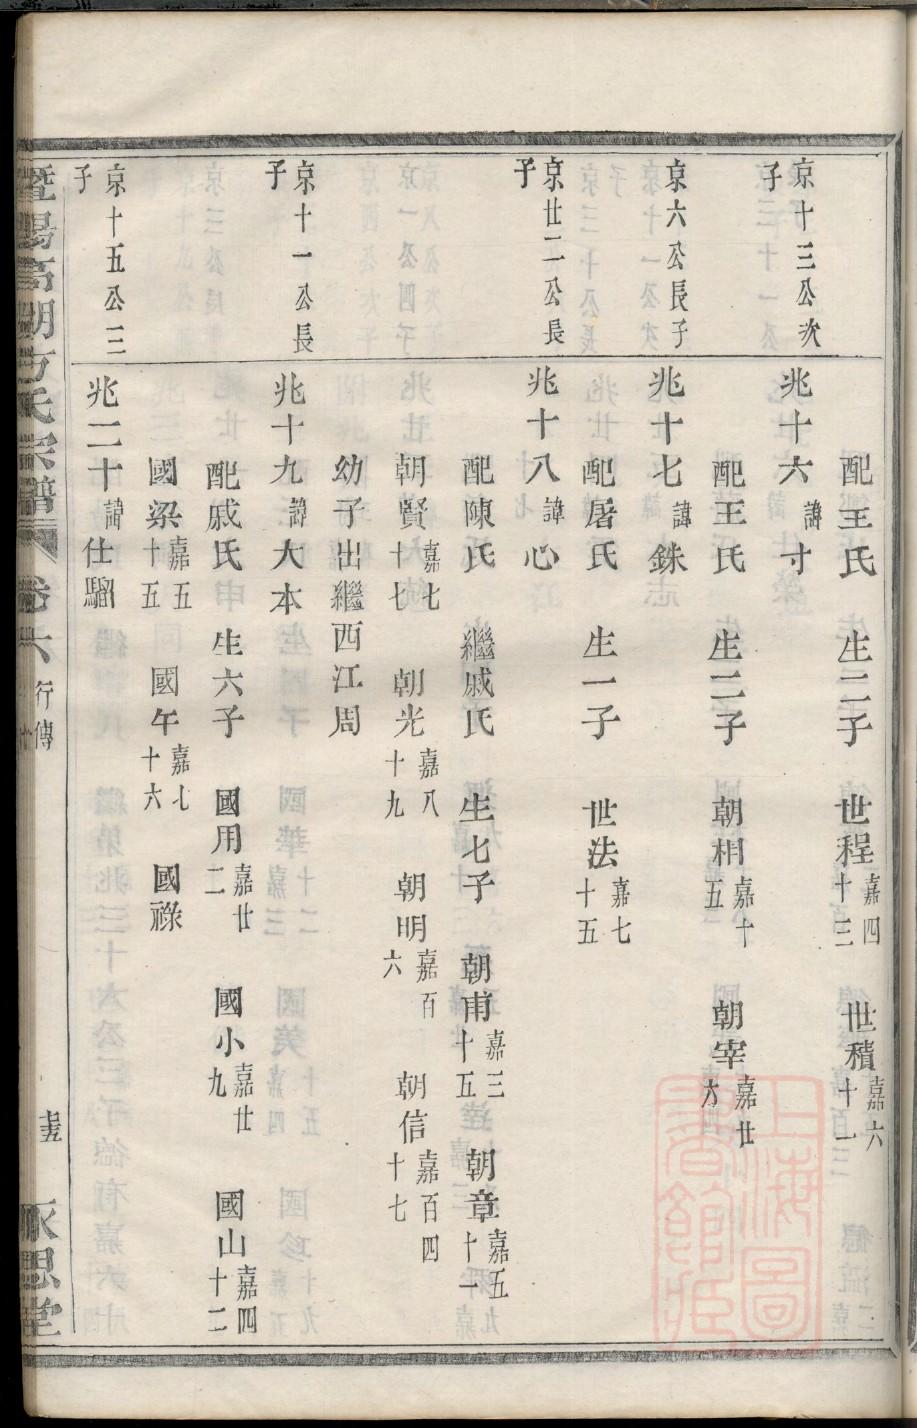 配王氏 生二子 世程嘉四十三 世積嘉六十一
京十三公次子
兆十六諱寸
配王氏 生二子 朝相嘉十五 朝宰嘉廿六
京六公長子
兆十七諱銖
配屠氏 生一子 世法嘉七十五
京廿二公長子
兆十八諱心
配陳氏 繼戚氏 生七子 朝甫嘉三十五 朝章嘉五十一
朝賢嘉七十七 朝光嘉八十九 朝明嘉百六 朝信嘉百四十七
幼子出繼西江周
京十一公長子
兆十九諱大本
配戚氏 生六子 國用嘉廿二 國小嘉廿九 國山嘉四十二
國梁嘉五十五 國午嘉七十六 國祿
京十五公三子
兆二十諱仕騮
暨陽高湖方氏宗譜 卷六 行傳 永思堂
上海圖書館藏